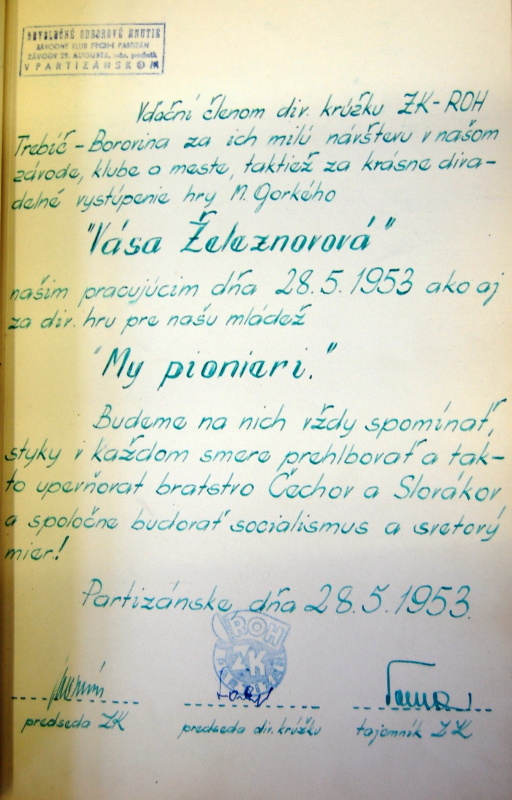 REVOLUČNÉ ODBOROVÉ HNUTIE
ZÁVODNÝ KLUB PRCH-I PARTIZÁN
ZÁVODY 29. AUGUSTA, nár. podnik
V PARTIZÁNSKOM
Vďační členom div. krúžku ZK-ROH
Trebíč-Borovina za ich milú návštevu v našom
závode, klube a meste, taktiež za krásne diva-
delné vystúpenie hry M. Gorkého
"Vása Železnovová"
našim pracujúcim dňa 28.5.1953 ako aj
za div. hru pre našu mládež
"My pionieri."
Budeme na nich vždy spomínať,
styky v každom smere prehlbovať a tak-
to upevňovať bratstvo Čechov a Slovákov
a spoločne budovať socialismus a svetový
mier!
Partizánske, dňa 28.5.1953.
ROH
ZK
PARTIZÁN
predseda ZK
predseda div. krúžku
tajomník ZK